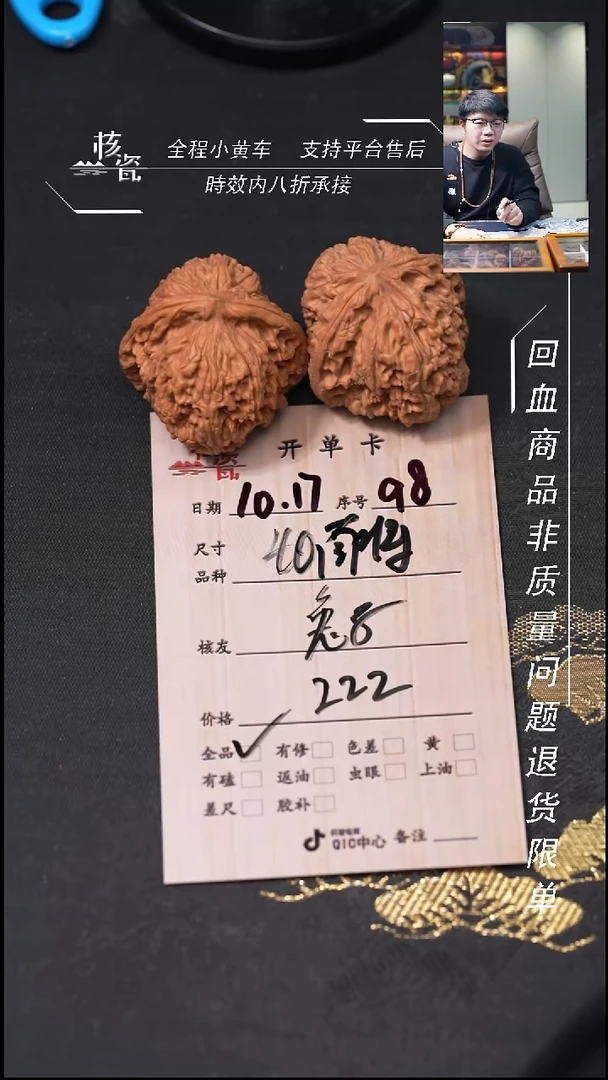 核瓷
全程小黄车 支持平台售后
時效内八折承接
回血商品非质量问题退货限单
开单卡
日期 10.17 序号 98
尺寸
品种 40,南
核友
价格 222
全品 ✓ 有修 色差 黄
有磕 返油 虫眼 上油
差尺 胶补
QIC中心 备注